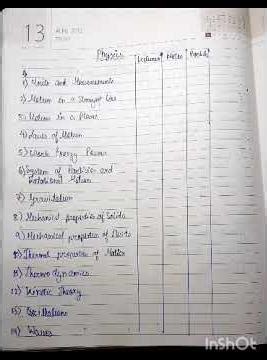 13
Physics
Lectures
Notes
1) Units and Measurements
2) Motion in a Straight Line
3) Motion in a Plane
4) Laws of Motion
5) Work Energy Power
6) System of Particles and
Rotational Motion
7) Gravitation
8) Mechanical properties of Solids
9) Mechanical properties of fluids
10) Thermal properties of Matter
11) Thermodynamics
12) Kinetic Theory
13) Oscillations
14) Waves
InShOt